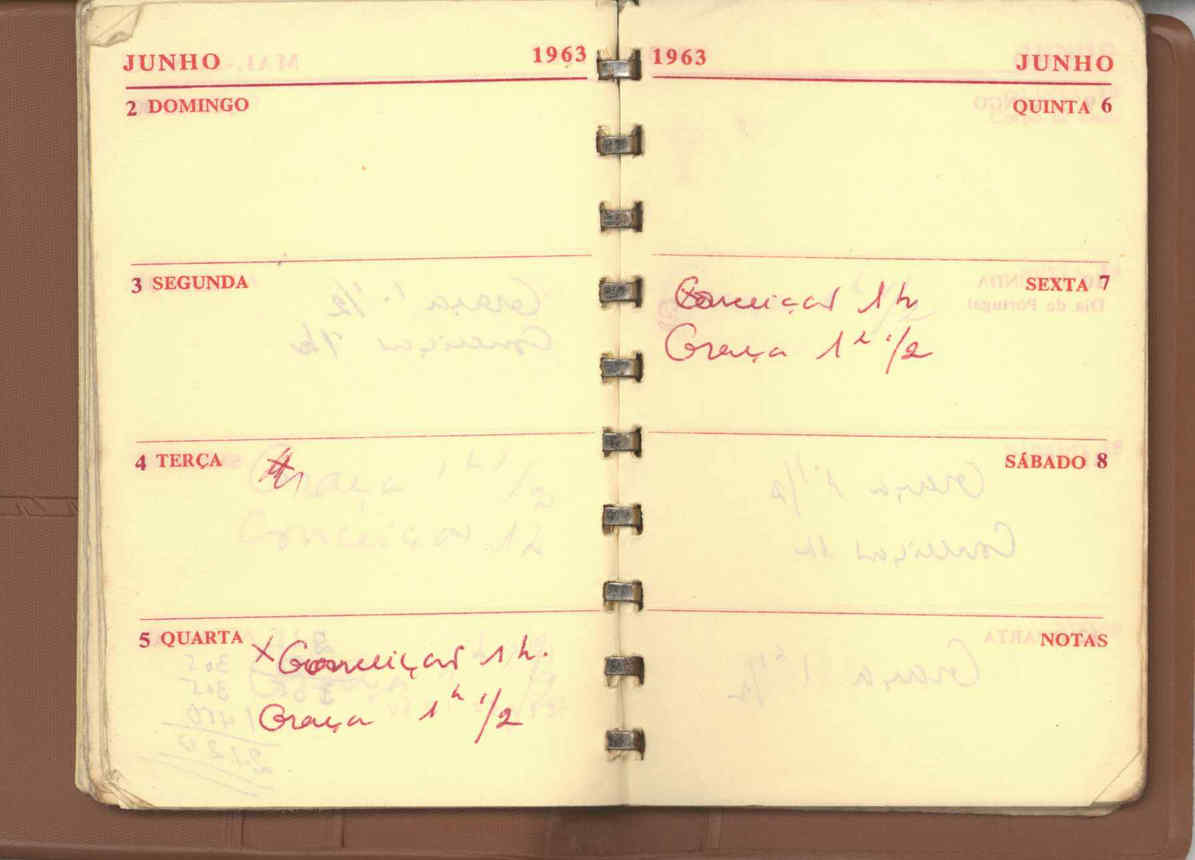 JUNHO 1963
2 DOMINGO
3 SEGUNDA
4 TERÇA
5 QUARTA
x Conceição 1 h.
Graça 1h 1/2
1963 JUNHO
QUINTA 6
SEXTA 7
Conceição 1 h
Graça 1h 1/2
SÁBADO 8
NOTAS